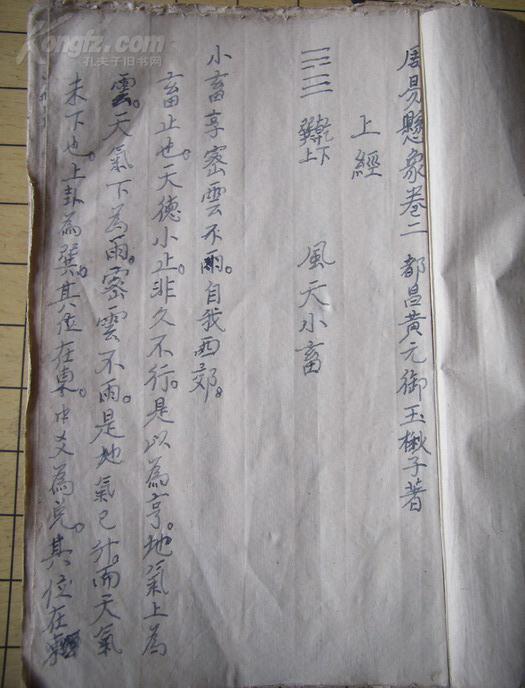 周易懸象卷二 都昌黃元御玉楸子著
上經
乾下
巽上
風天小畜
小畜亨密雲不雨。自我西郊。
畜止也。天德小止。非久不行。是以為亨。地氣上為
雲。天氣下為雨。密雲不雨。是地氣已升。而天氣
未下也。上卦為巽。其位在東。中爻為兌。其位在
Kongfz.com
孔夫子旧书网